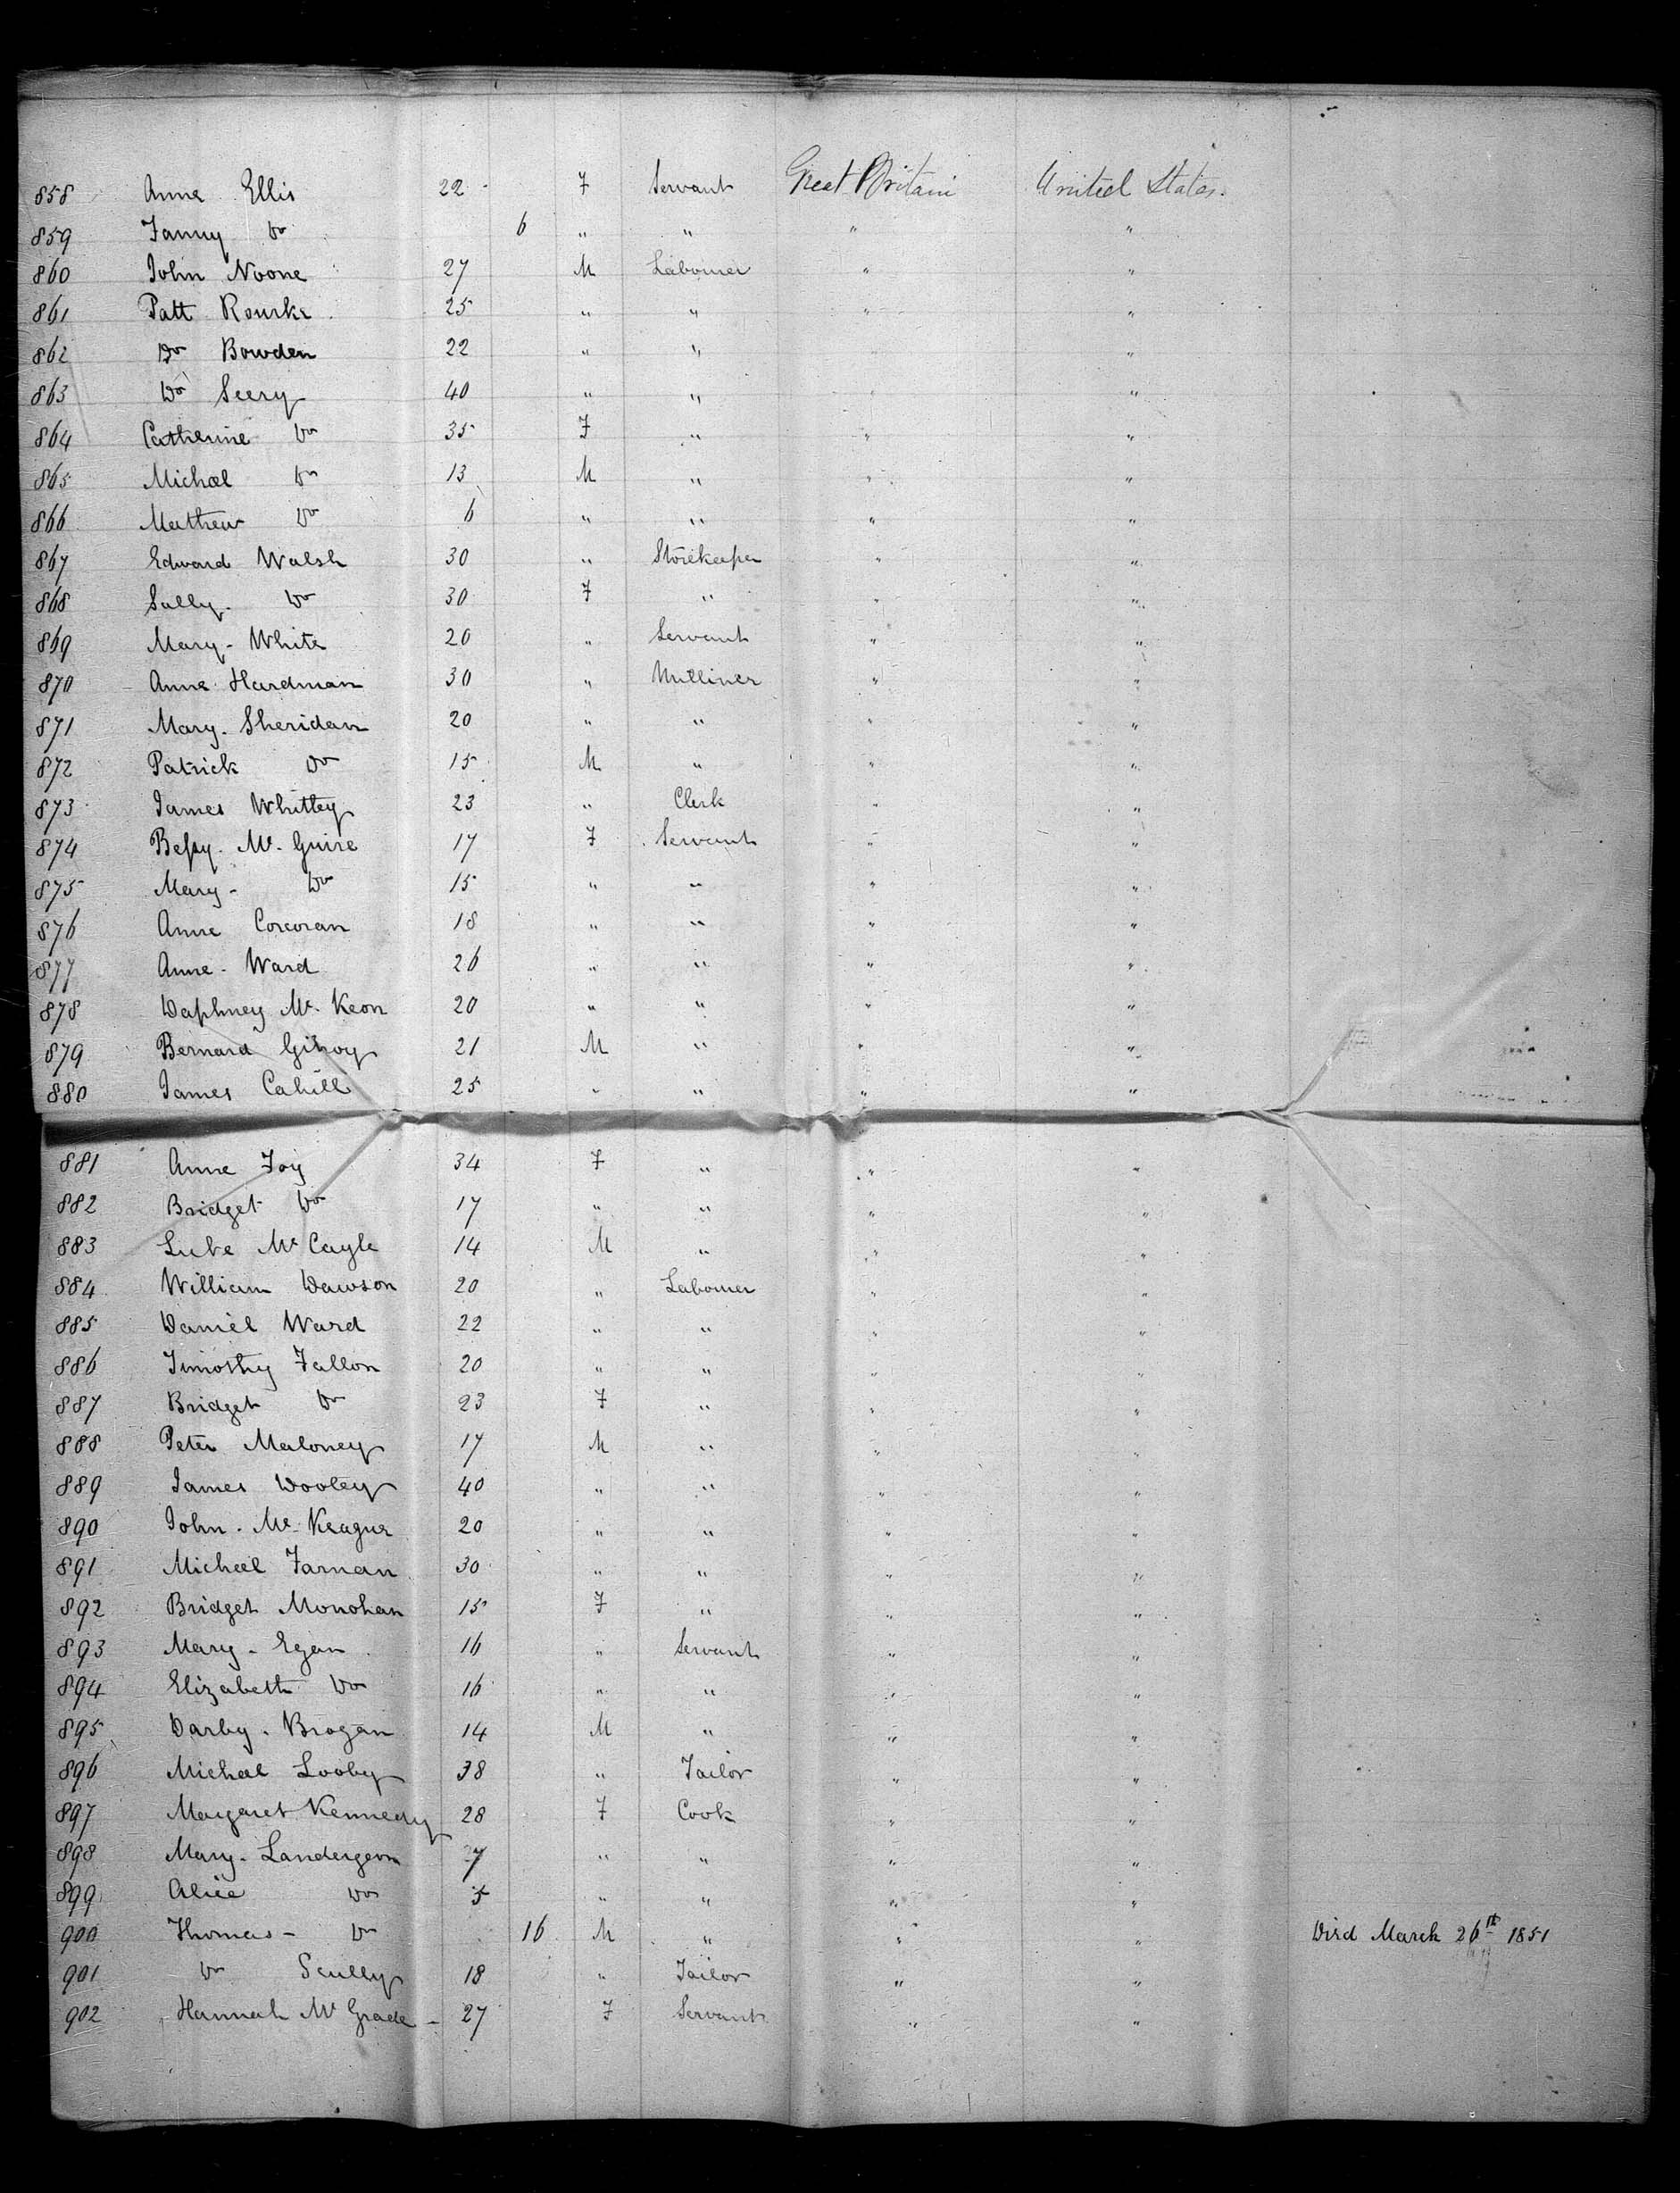 858 Anne Ellis 22 F Servant Great Britain United States.
859 Fanny Do 6 " " " "
860 John Noone 27 M Labourer " "
861 Patt Rourke 25 " " " "
862 Do Bowden 22 " " " "
863 Do Seery 40 " " " "
864 Catherine Do 35 F " " "
865 Michael Do 13 M " " "
866 Mathew Do 6 " " " "
867 Edward Walsh 30 " Storekeeper " "
868 Sally Do 30 F " " "
869 Mary White 20 " Servant " "
870 Anne Hardman 30 " Milliner " "
871 Mary Sheridan 20 " " " "
872 Patrick Do 15 M " " "
873 James Whitley 23 " Clerk " "
874 Bessy Mc Guire 17 F Servant " "
875 Mary Do 15 " " " "
876 Anne Corcoran 18 " " " "
877 Anne Ward 26 " " " "
878 Daphney Mc Keon 20 " " " "
879 Bernard Gilroy 21 M " " "
880 James Cahill 25 " " " "
881 Anne Foy 34 F " " "
882 Bridget Do 17 " " " "
883 Luke Mc Cayle 14 M " " "
884 William Dawson 20 " Labourer " "
885 Daniel Ward 22 " " " "
886 Timothy Fallon 20 " " " "
887 Bridget Do 23 F " " "
888 Peter Maloney 17 M " " "
889 James Dooley 40 " " " "
890 John Mc Keague 20 " " " "
891 Michael Farnan 30 " " " "
892 Bridget Monohan 15 F " " "
893 Mary Egan 16 " Servant " "
894 Elizabeth Do 16 " " " "
895 Darby Brogan 14 M " " "
896 Michael Looby 38 " Tailor " "
897 Margaret Kennedy 28 F Cook " "
898 Mary Landergem 7 " " " "
899 Alice Do 5 " " " "
900 Thomas Do 16 M " " " Died March 26th 1851
901 Do Scully 18 " Tailor " "
902 Hannah Mc Grade 27 F Servant " "